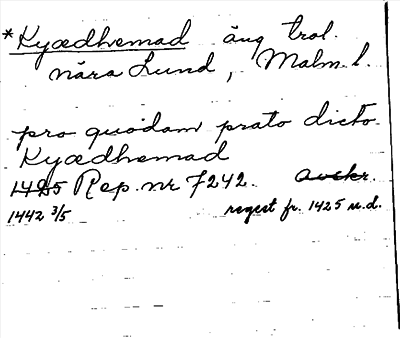 *Kyædhemad äng trol.
nära Lund, Malm. l.
pro quodam prato dicto
Kyædhemad
1425 Rep. nr 7242. Avskr.
1442 3/5 regest fr. 1425 u.d.